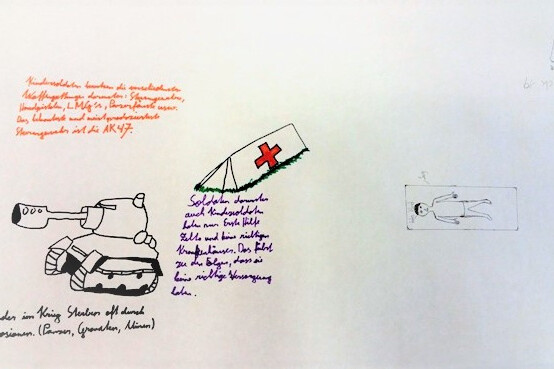 Kindersoldaten
Waffengattungen darunter: Sturmgewehre,
Handpistolen, L. Mg's, Panzerfäuste usw.
Das bekannteste und meist produzierteste
Sturmgewehr ist die AK 47.
Soldaten darunter
auch Kindersoldaten
haben nur Erste Hilfe
Zelte und keine richtigen
Krankenhäuser. Das führt
zu den Folgen, dass sie
keine richtige Versorgung
haben.
der im Krieg Sterben oft durch
osionen. (Panzer, Granaten, Minen)